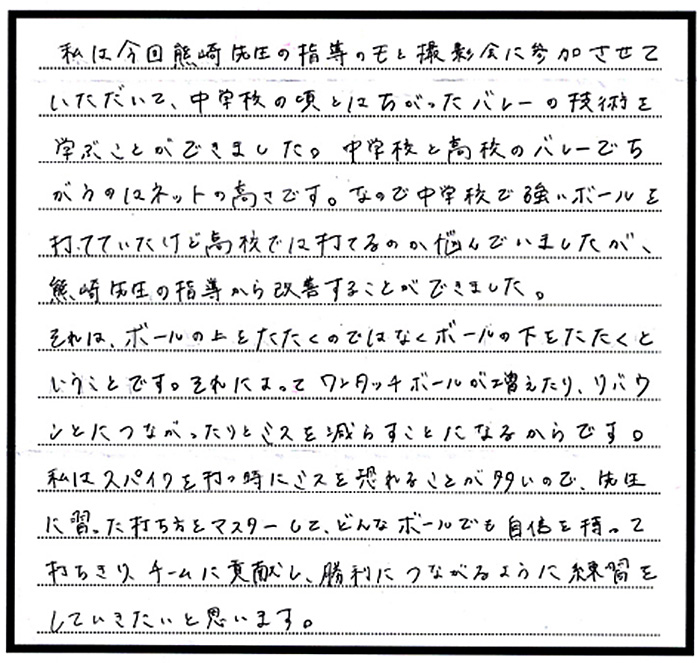 私は今回熊崎先生の指導のもと撮影会に参加させて
いただいて、中学校の頃とはちがったバレーの技術を
学ぶことができました。中学校と高校のバレーでち
がうのはネットの高さです。なので中学校で強いボールを
打てていたけど高校では打てるのか悩んでいましたが、
熊崎先生の指導から改善することができました。
それは、ボールの上をたたくのではなくボールの下をたたくと
いうことです。それによって ワンタッチボールが増えたり、リバウ
ンドにつながったりとミスを減らすことになるからです。
私はスパイクを打つ時にミスを恐れることが多いので、先生
に習った打ち方をマスターして、どんなボールでも自信を持って
打ちきり、チームに貢献し、勝利につながるように練習を
していきたいと思います。